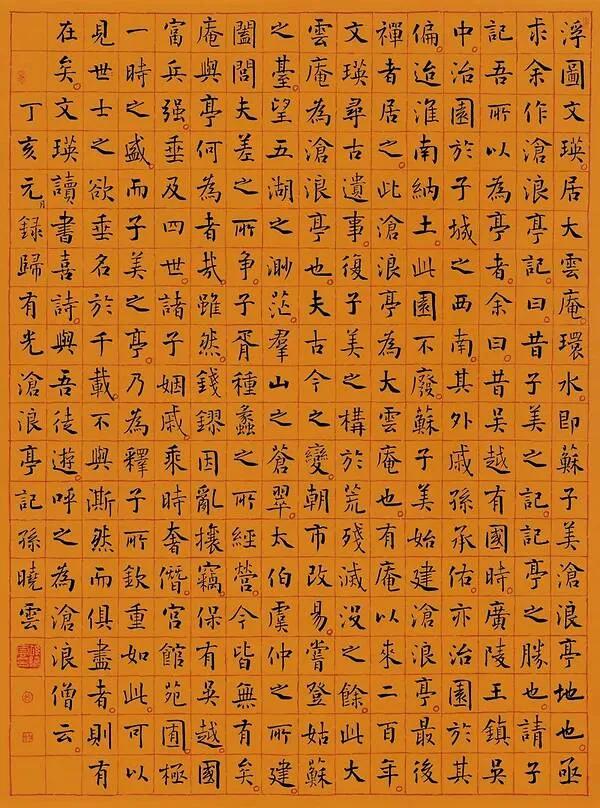 浮圖文瑛居大雲庵環水即蘇子美滄浪亭地也亟
求余作滄浪亭記曰昔子美之記記亭之勝也請子
記吾所以為亭者余曰昔吳越有國時廣陵王鎮吳
中治園於子城之西南其外戚孫承佑亦治園於其
偏迨淮南納土此園不廢蘇子美始建滄浪亭最後
禪者居之此滄浪亭為大雲庵也有庵以來二百年
文瑛尋古遺事復子美之構於荒殘滅沒之餘此大
雲庵為滄浪亭也夫古今之變朝市改易嘗登姑蘇
之臺望五湖之渺茫羣山之蒼翠太伯虞仲之所建
闔閭夫差之所争子胥種蠡之所經營今皆無有矣
庵與亭何為者哉雖然錢鏐因亂攘竊保有吳越國
富兵强垂及四世諸子姻戚乘時奢僭宮館苑囿極
一時之盛而子美之亭乃為釋子所欽重如此可以
見世士之欲垂名於千載不與澌然而俱盡者則有
在矣文瑛讀書喜詩與吾徒遊呼之為滄浪僧云
丁亥元月錄歸有光滄浪亭記孫曉雲